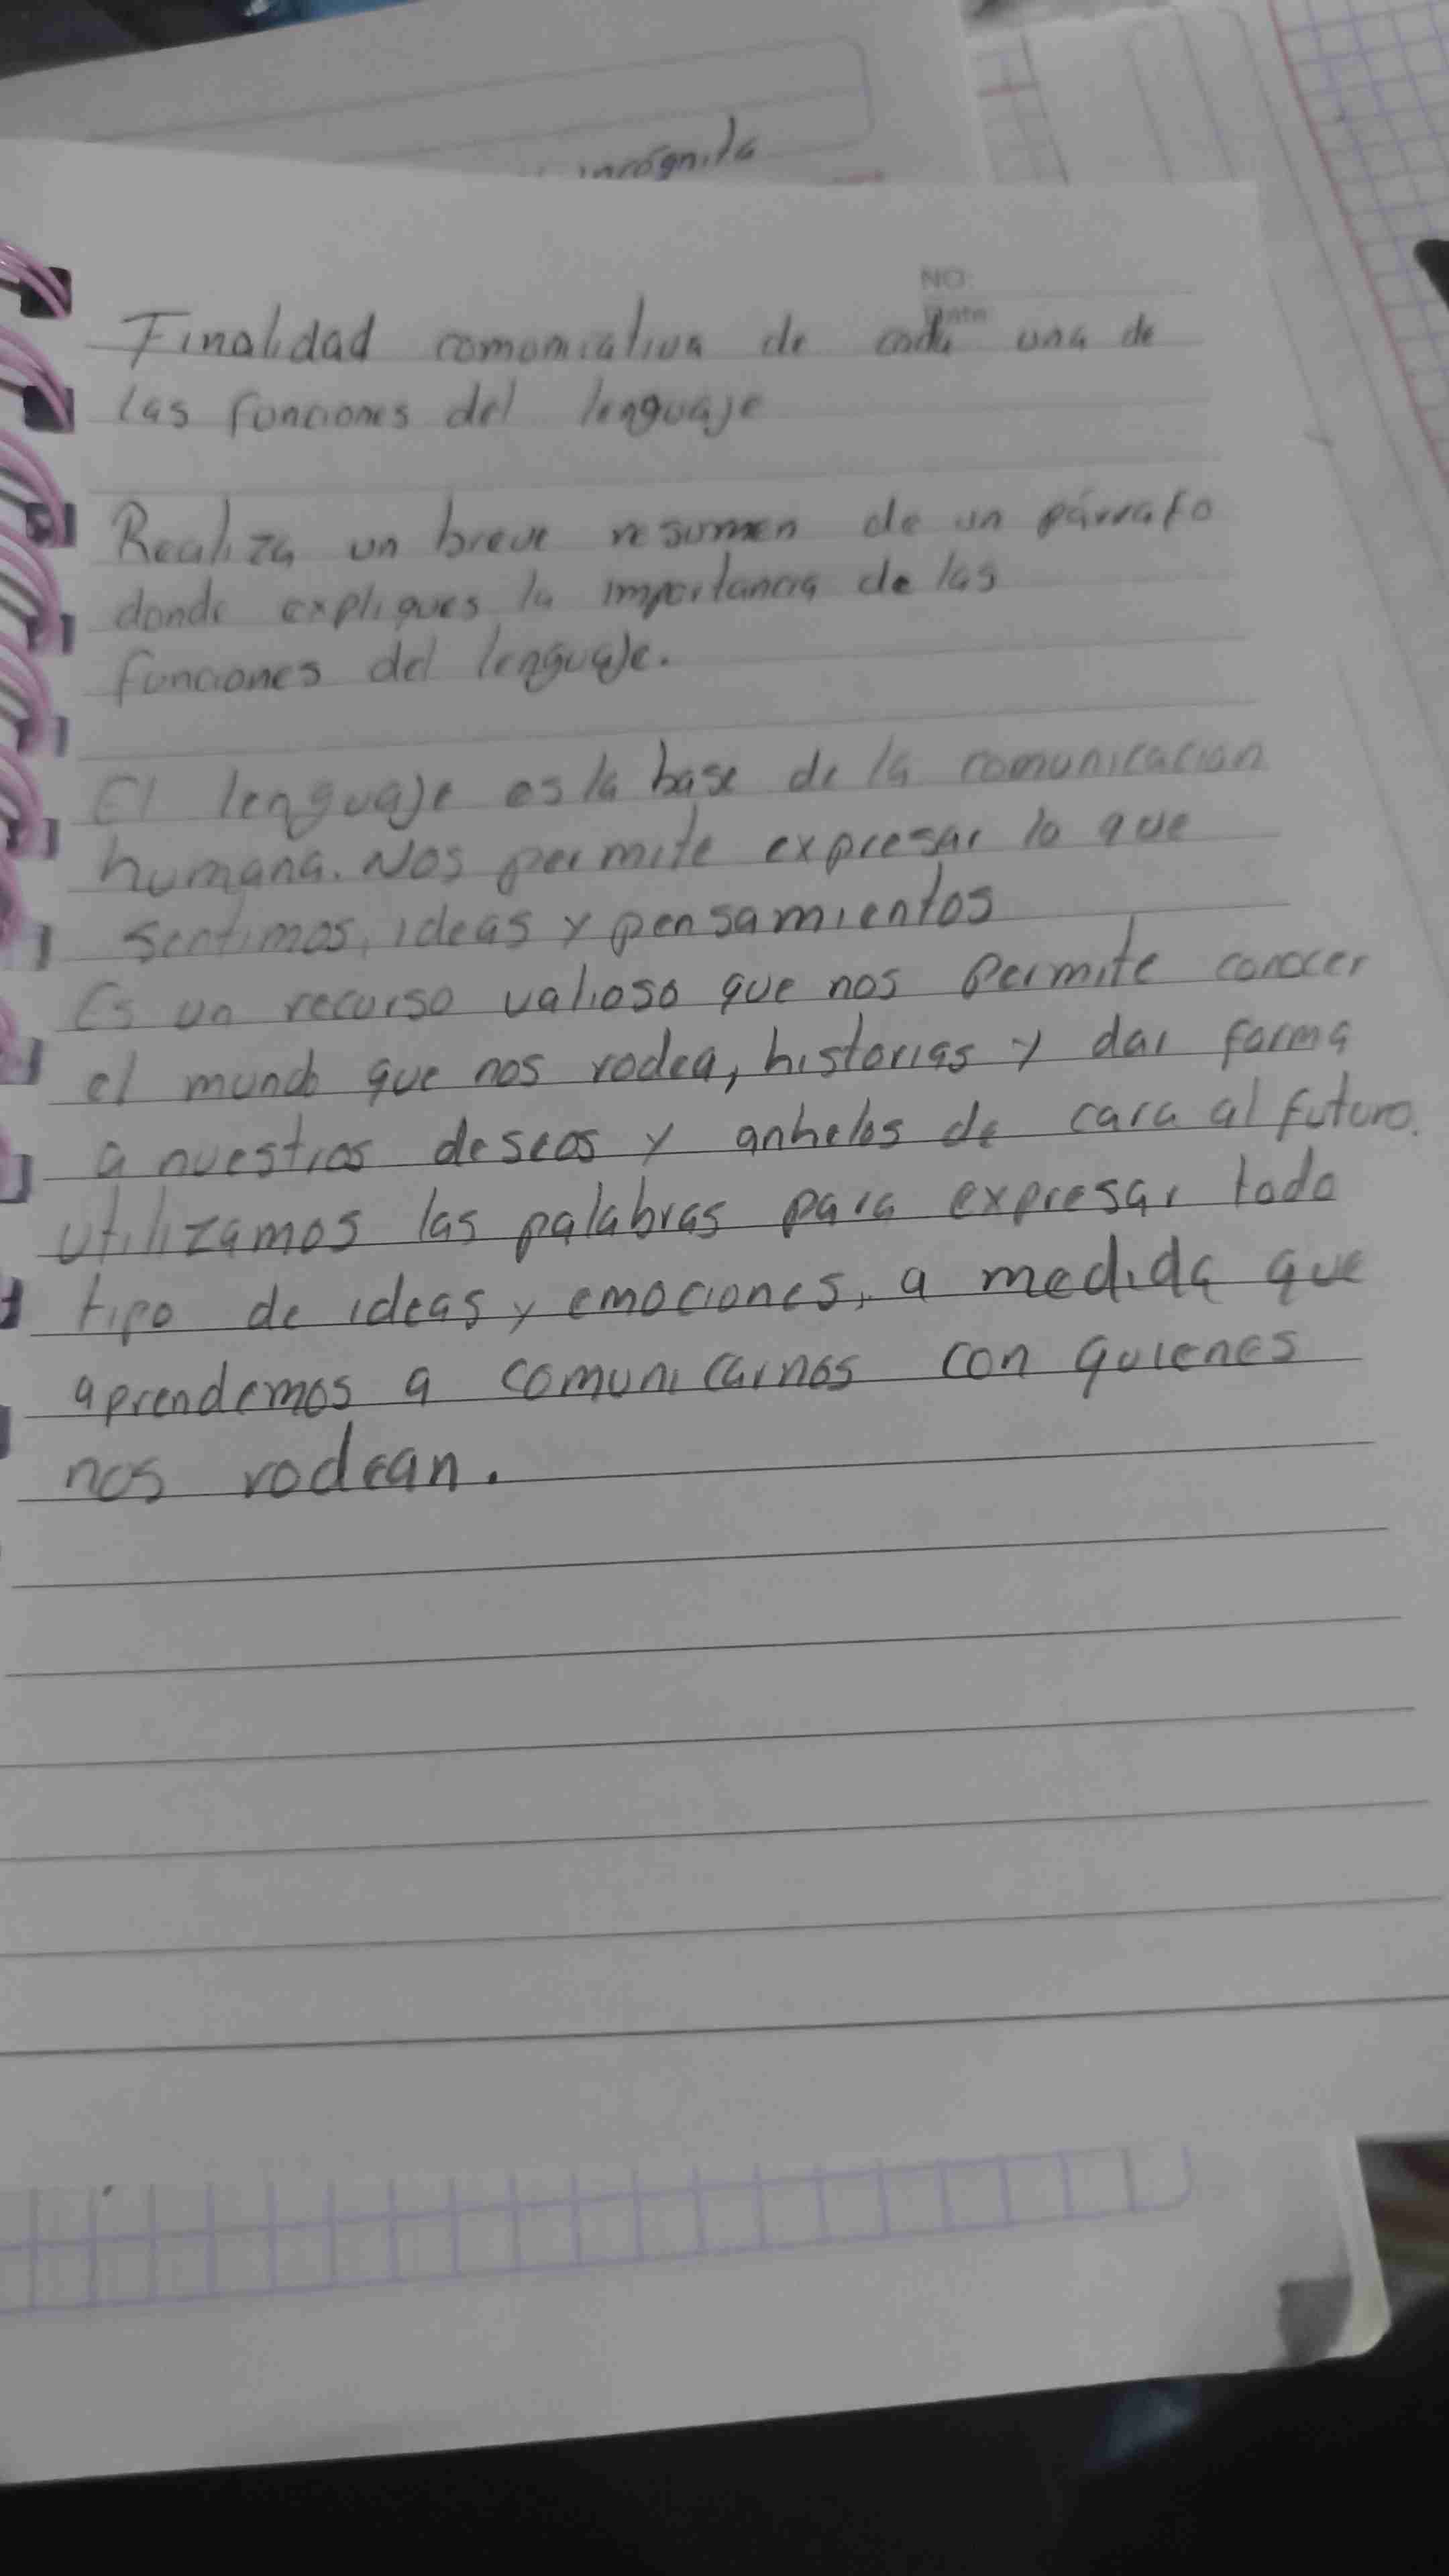 incógnita
NO:
Date
Finalidad comomicativa de cada una de
las funciones del lenguaje
Realiza un breve resumen de un párrafo
donde expliques la importancia de las
funciones del lenguaje.
El lenguaje es la base de la comunicacion
humana. Nos permite expresar lo que
sentimos, ideas y pensamientos
Es un recurso valioso que nos permite conocer
el mundo que nos rodea, historias y dar forma
a nuestros deseos y anhelos de cara al futuro.
utilizamos las palabras para expresar todo
tipo de ideas y emociones, a medida que
aprendemos a comunicarnos con quienes
nos rodean.